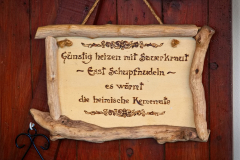 Günstig heizen mit Sauerkraut
~ Esst Schupfnudeln ~
es wärmt
die heimische Kemenate